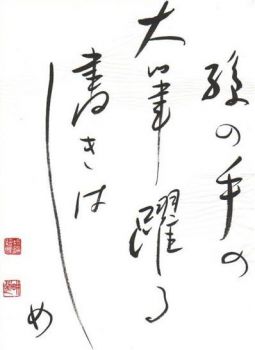 孫の手の
大筆躍る
書きはしめ